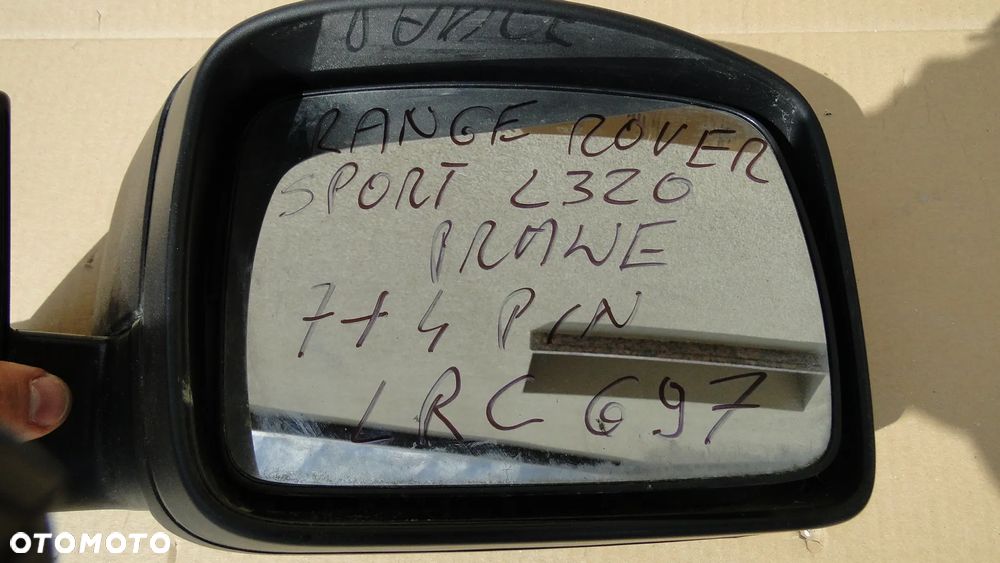 RANGE ROVER
SPORT L320
PRAWE
7+4 PIN
LRC 697
OTOMOTO